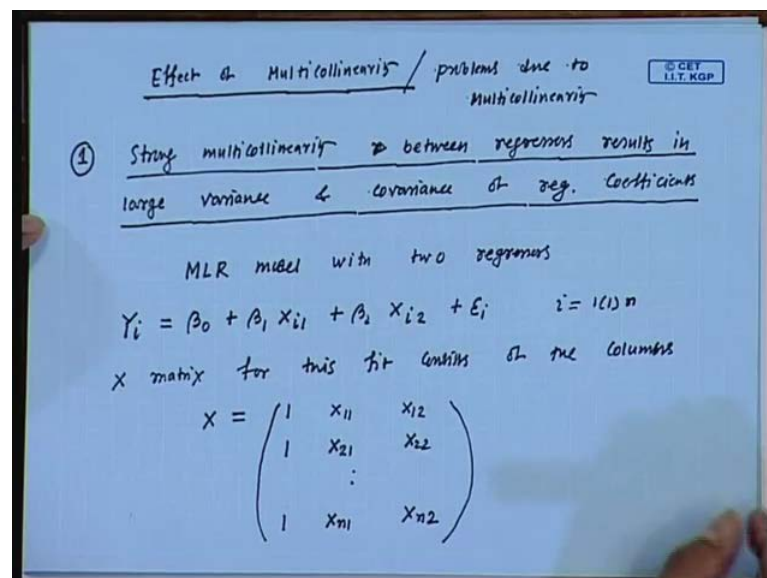 Effect of Multicollinearity / problems due to
Multicollinearity
© CET
I.I.T. KGP
① Strong multicollinearity between regressors results in
large variance & covariance of reg. coefficients
MLR model with two regressors
Yi = β0 + β1 Xi1 + β2 Xi2 + εi i = 1(1) n
X matrix for this fit consists of the columns
X = ( 1 X11 X12
1 X21 X22
:
1 Xn1 Xn2 )